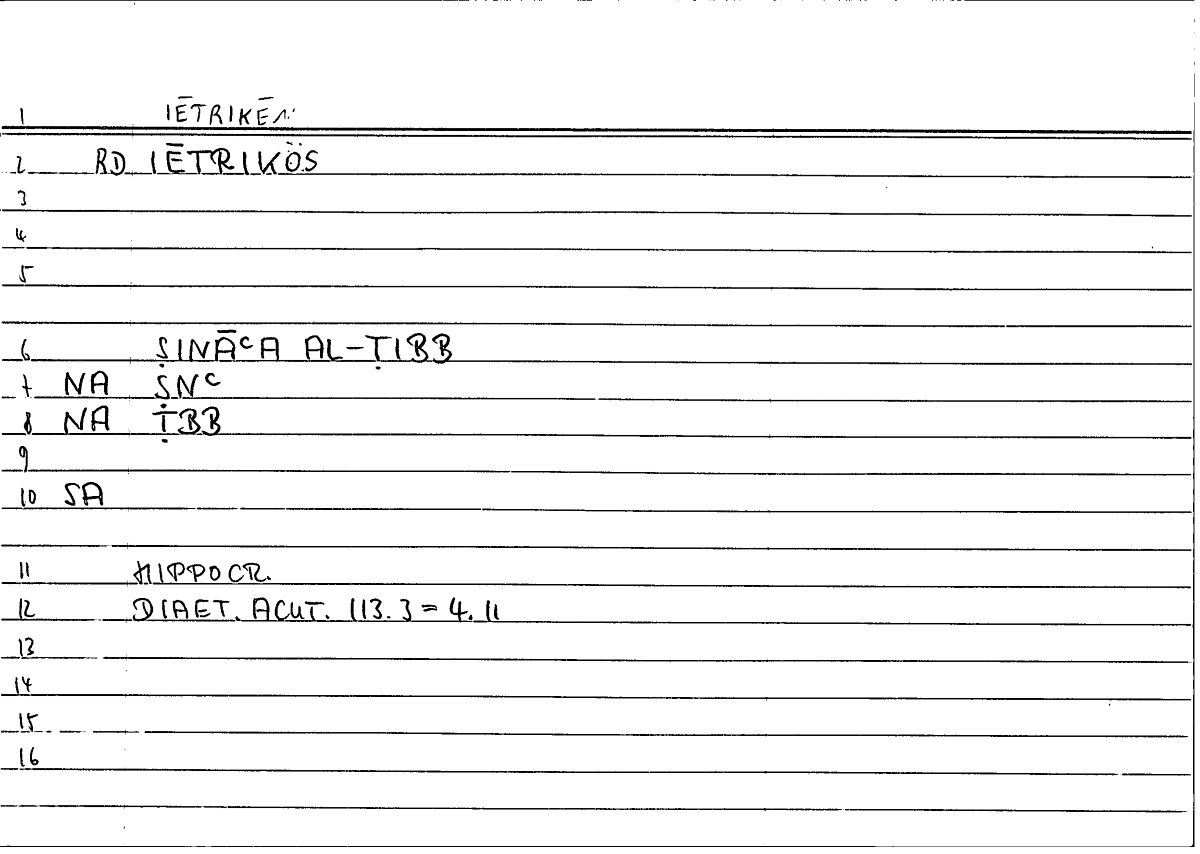 1 IĒTRIKĒN
2 RD IĒTRIKÖS
3
4
5
6 ṢINĀᶜA AL-ṬIBB
7 NA ṢNᶜ
8 NA ṬBB
9
10 SA
11 HIPPOCR.
12 DIAET. ACUT. 113.3 = 4.11
13
14
15
16